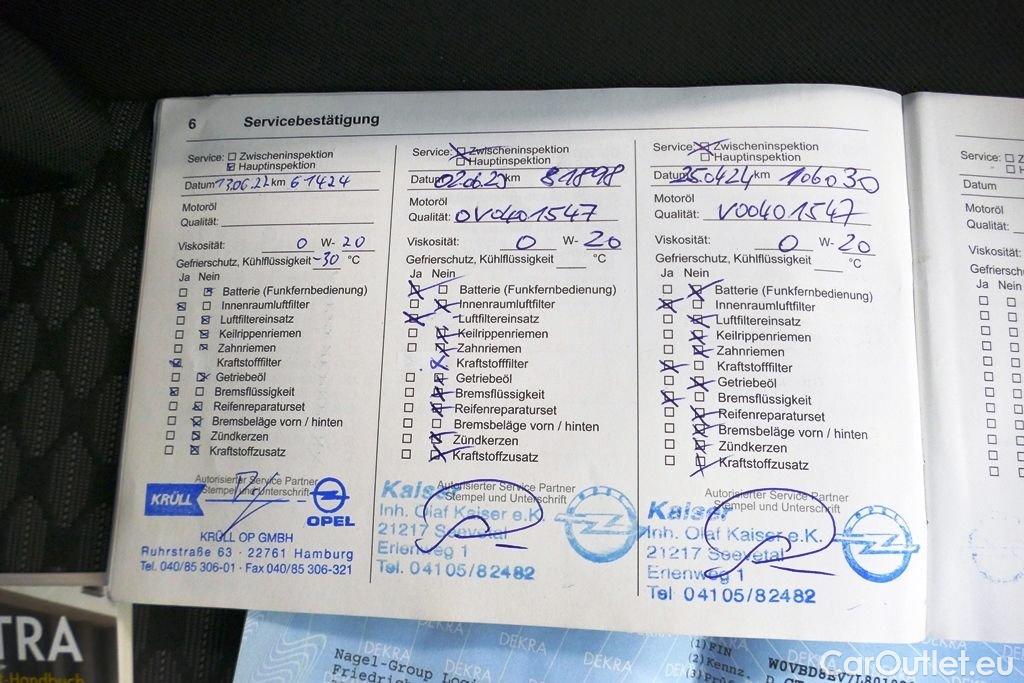 6 Servicebestätigung
Service: Zwischeninspektion
Hauptinspektion
Datum 13.06.22 km 61424
Motoröl
Qualität:
Viskosität: 0 W- 20
Gefrierschutz, Kühlflüssigkeit -30 °C
Ja Nein
Batterie (Funkfernbedienung)
Innenraumluftfilter
Luftfiltereinsatz
Keilrippenriemen
Zahnriemen
Kraftstofffilter
Getriebeöl
Bremsflüssigkeit
Reifenreparaturset
Bremsbeläge vorn / hinten
Zündkerzen
Kraftstoffzusatz
Autorisierter Service Partner
Stempel und Unterschrift
KRÜLL
OPEL
KRÜLL OP GMBH
Ruhrstraße 63 · 22761 Hamburg
Tel. 040/85 306-01 · Fax 040/85 306-321
Service: Zwischeninspektion
Hauptinspektion
Datum 02.06.23 km 81898
Motoröl
Qualität: 0V0401547
Viskosität: 0 W- 20
Gefrierschutz, Kühlflüssigkeit °C
Ja Nein
Batterie (Funkfernbedienung)
Innenraumluftfilter
Luftfiltereinsatz
Keilrippenriemen
Zahnriemen
Kraftstofffilter
Getriebeöl
Bremsflüssigkeit
Reifenreparaturset
Bremsbeläge vorn / hinten
Zündkerzen
Kraftstoffzusatz
Autorisierter Service Partner
Stempel und Unterschrift
Kaiser
Inh. Olaf Kaiser e.K.
21217 Seevetal
Erlenweg 1
Tel. 04105/82482
Service: Zwischeninspektion
Hauptinspektion
Datum 25.04.24 km 106030
Motoröl
Qualität: V00401547
Viskosität: 0 W- 20
Gefrierschutz, Kühlflüssigkeit °C
Ja Nein
Batterie (Funkfernbedienung)
Innenraumluftfilter
Luftfiltereinsatz
Keilrippenriemen
Zahnriemen
Kraftstofffilter
Getriebeöl
Bremsflüssigkeit
Reifenreparaturset
Bremsbeläge vorn / hinten
Zündkerzen
Kraftstoffzusatz
Autorisierter Service Partner
Stempel und Unterschrift
Kaiser
Inh. Olaf Kaiser e.K.
21217 Seevetal
Erlenweg 1
Tel 04105/82482
Service:
Datum
Motoröl
Qualität:
Viskosität:
Gefriersch
Ja Nein
TRA
t-Handbuch
DEKRA DEKRA DEKRA DEKRA
Nagel-Group
Friedrich
(1)FIN
(2)Kennz.
CarOutlet.eu